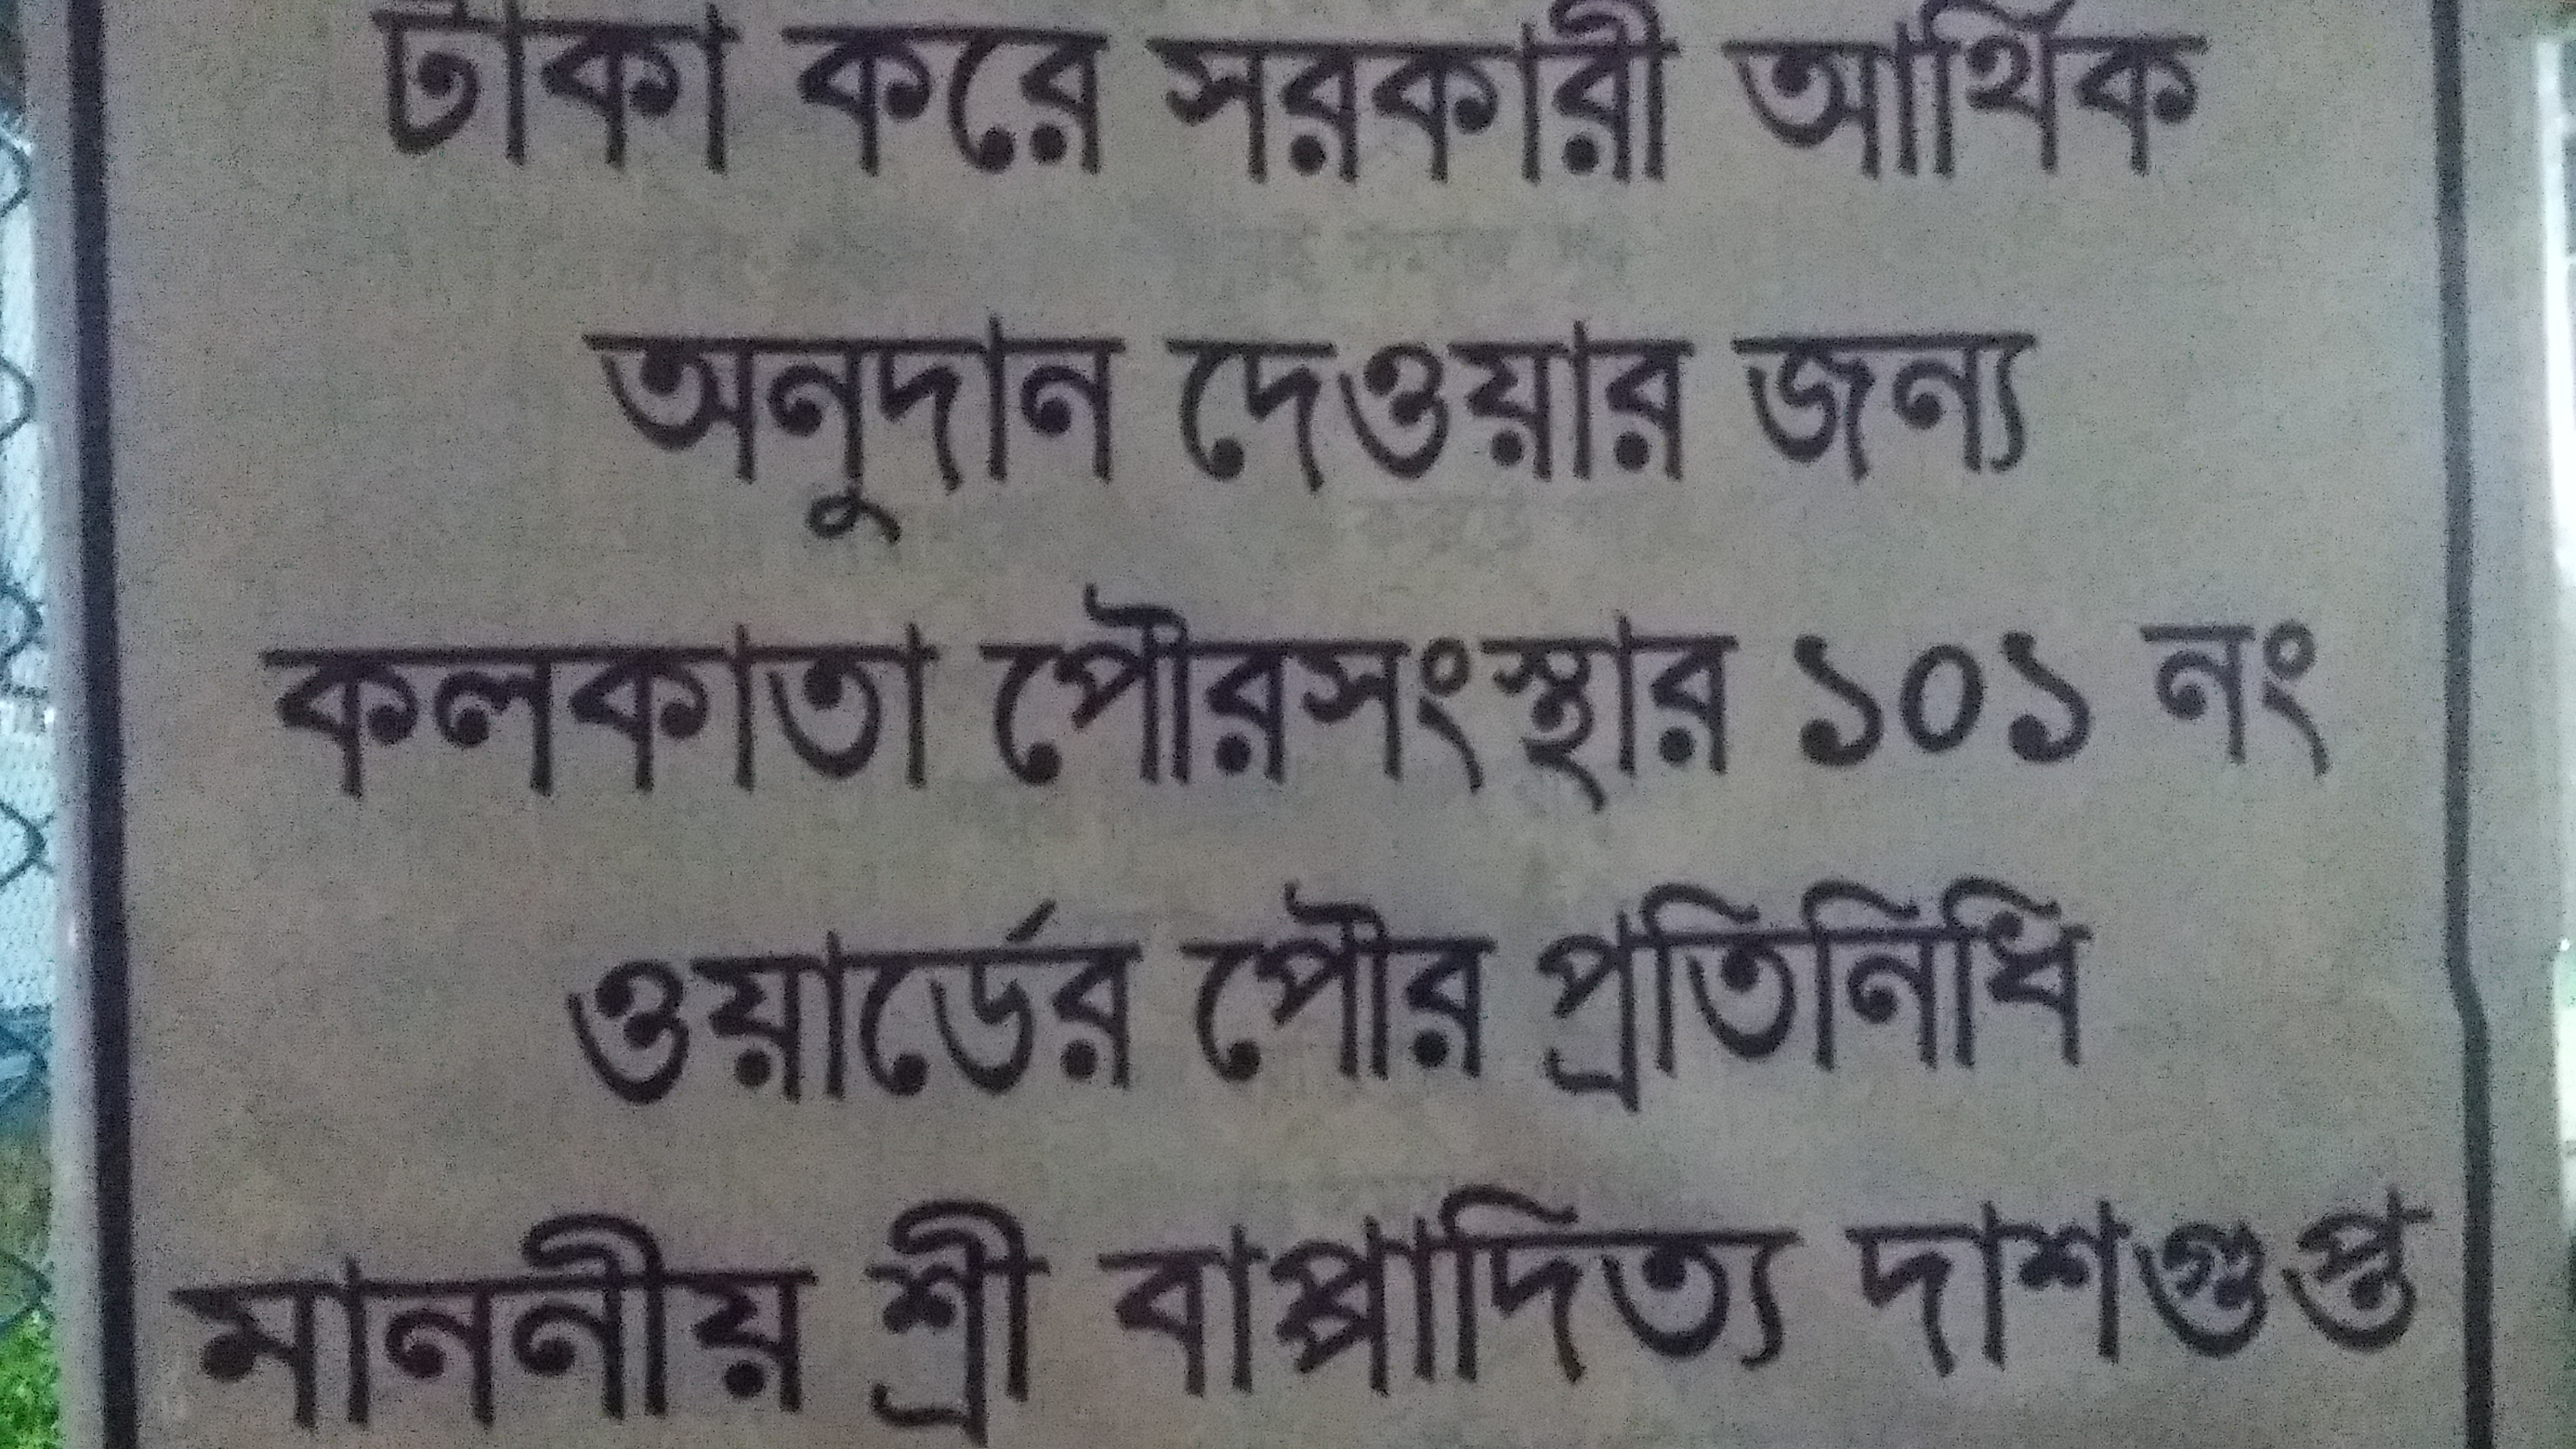 টাকা করে সরকারী আর্থিক
অনুদান দেওয়ার জন্য
কলকাতা পৌরসংস্থার ১০১ নং
ওয়ার্ডের পৌর প্রতিনিধি
মাননীয় শ্রী বাপ্পাদিত্য দাশগুপ্ত